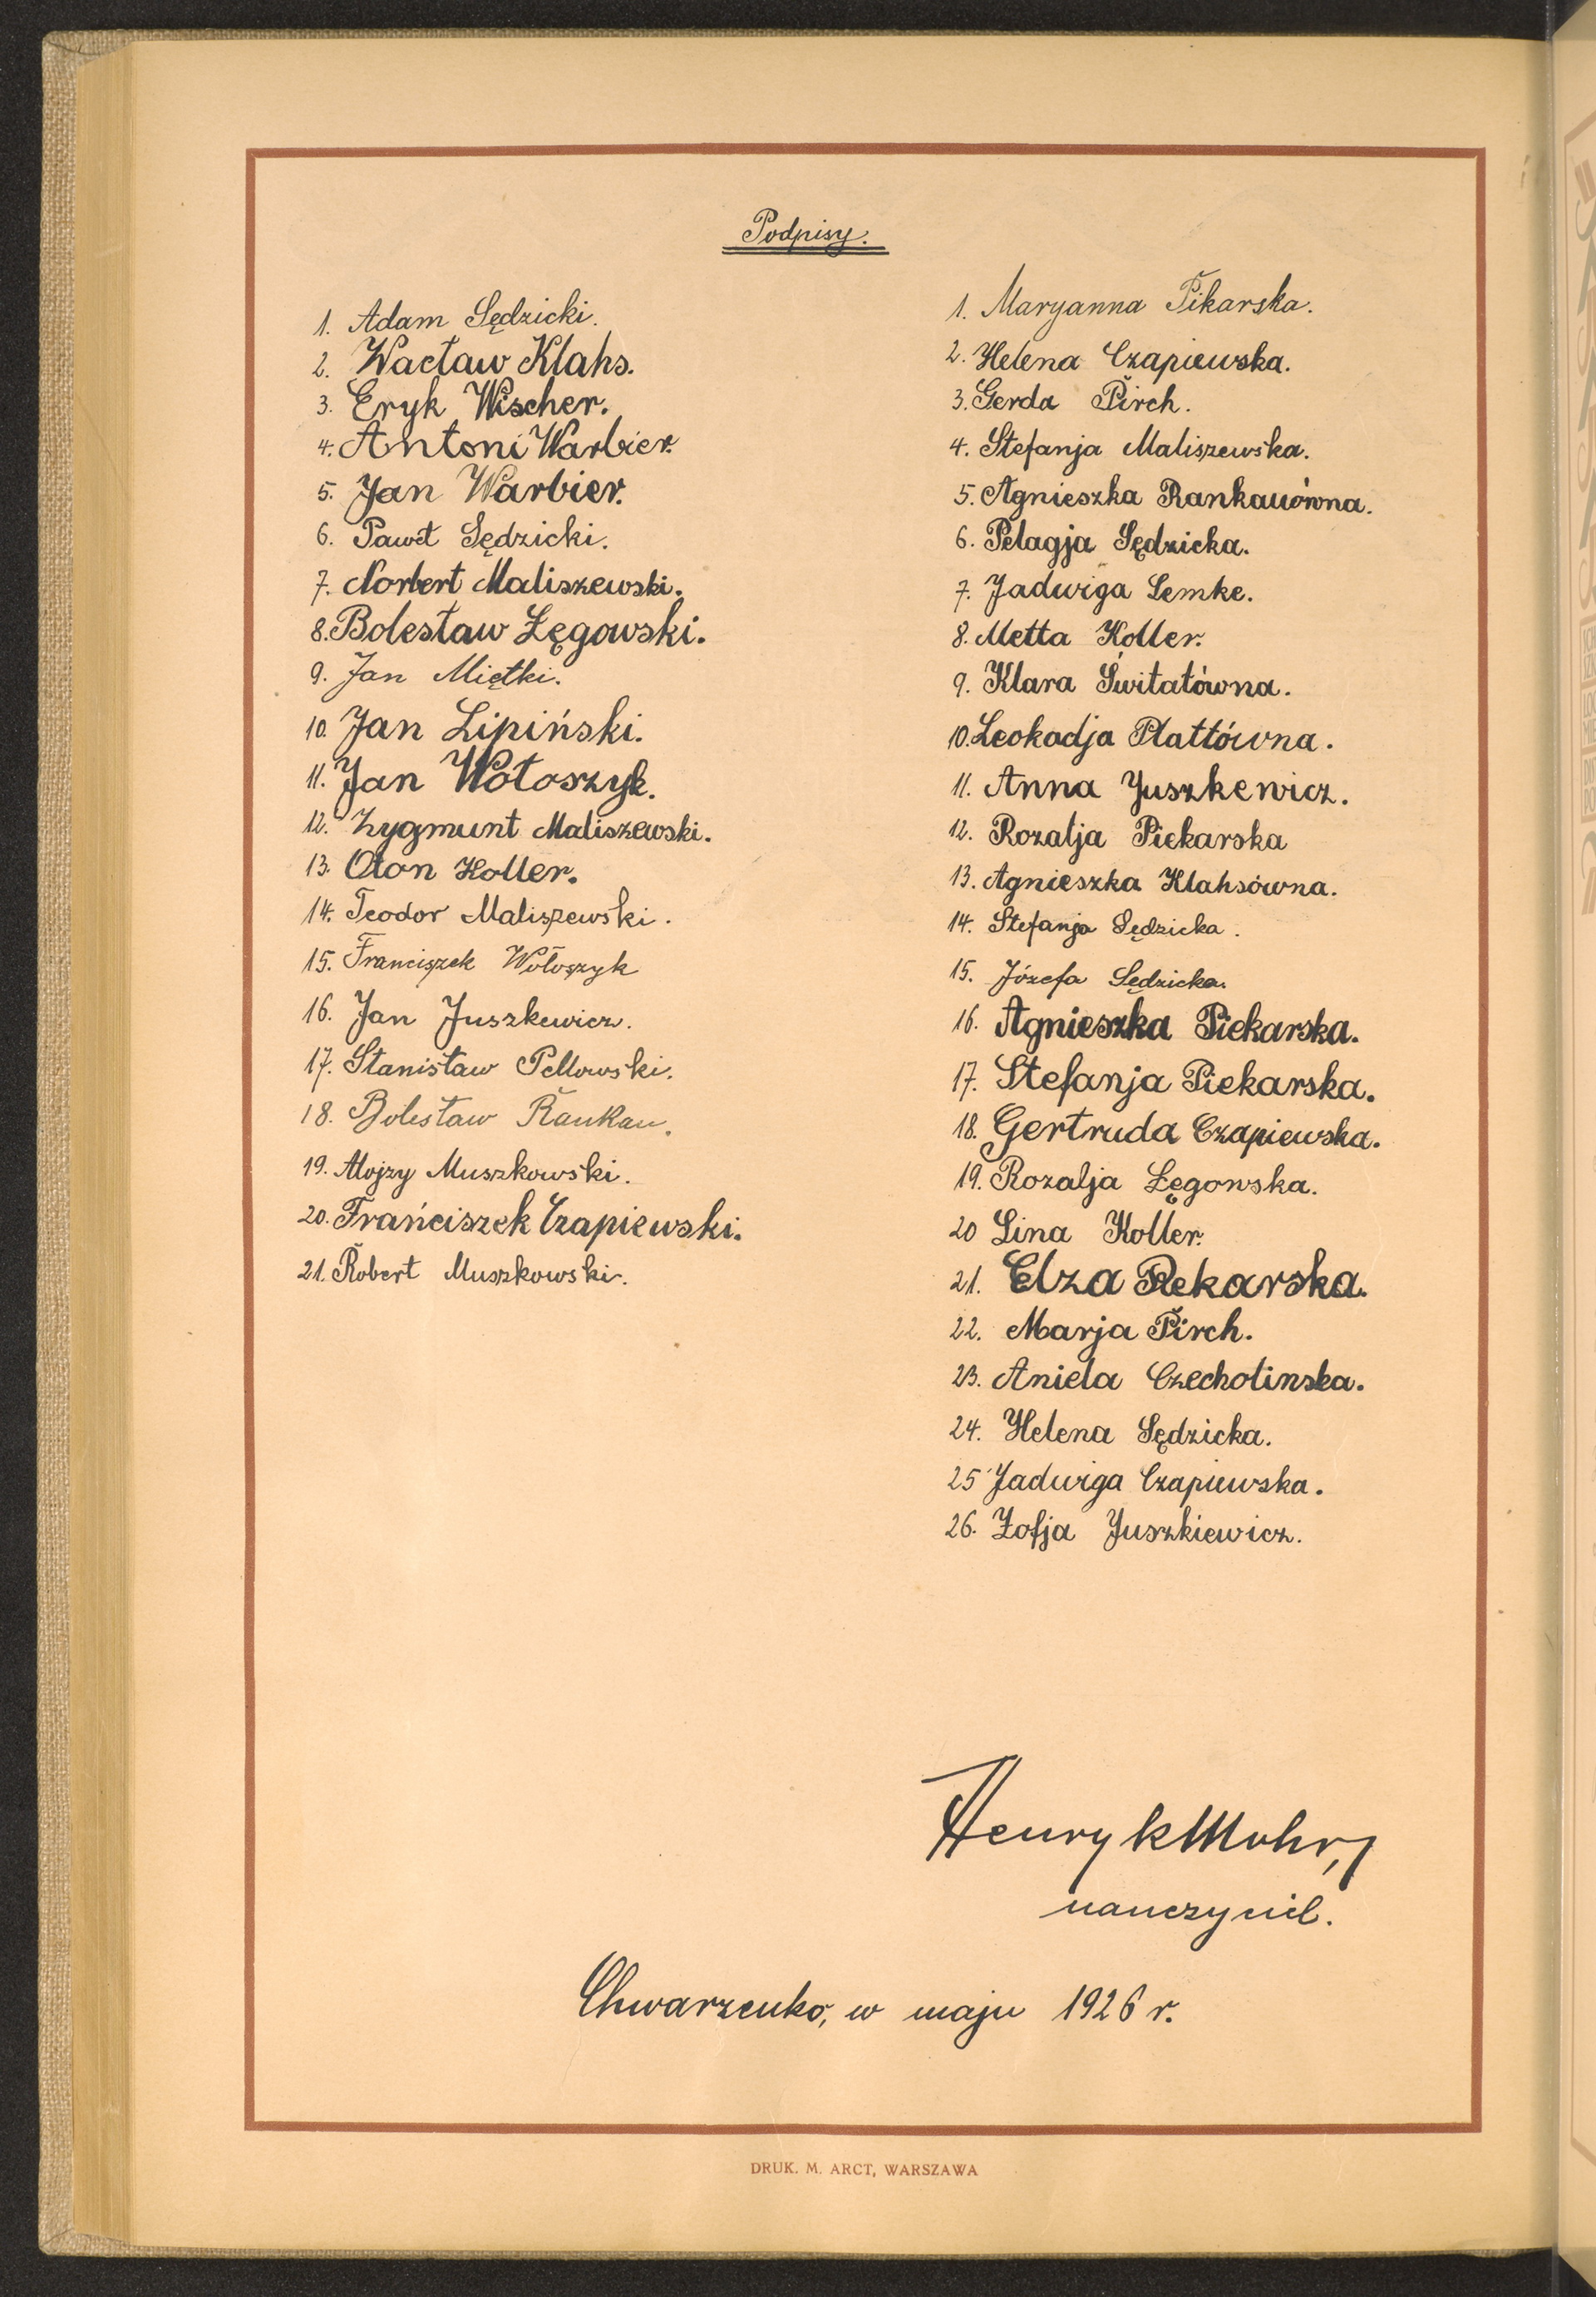 Podpisy.
1. Adam Sędzicki.
2. Wacław Klahs.
3. Eryk Wischer.
4. Antoni Warbier.
5. Jan Warbier.
6. Paweł Sędzicki.
7. Norbert Maliszewski.
8. Bolesław Łęgowski.
9. Jan Miętki.
10. Jan Lipiński.
11. Jan Wołoszyk.
12. Zygmunt Maliszewski.
13. Oton Koller.
14. Teodor Maliszewski.
15. Franciszek Wołoszyk
16. Jan Juszkewicz.
17. Stanisław Pellowski.
18. Bolesław Rankau.
19. Alojzy Muszkowski.
20. Frańciszek Czapiewski.
21. Robert Muszkowski.
1. Maryanna Pikarska.
2. Helena Czapiewska.
3. Gerda Pirch.
4. Stefanja Maliszewska.
5. Agnieszka Rankauówna.
6. Pelagja Sędzicka.
7. Jadwiga Lemke.
8. Metta Koller.
9. Klara Świtatówna.
10. Leokadja Plattówna.
11. Anna Juszkewicz.
12. Rozalja Piekarska
13. Agnieszka Klahsówna.
14. Stefanja Sędzicka.
15. Józefa Sędzicka.
16. Agnieszka Piekarska.
17. Stefanja Piekarska.
18. Gertruda Czapiewska.
19. Rozalja Łęgowska.
20 Lina Koller.
21. Elza Rekarska.
22. Marja Pirch.
23. Aniela Czecholinska.
24. Helena Sędzicka.
25 Jadwiga Czapiewska.
26. Zofja Juszkiewicz.
Henryk Mohr,
nauczyciel.
Chwarzenko, w maju 1926 r.
DRUK. M. ARCT, WARSZAWA